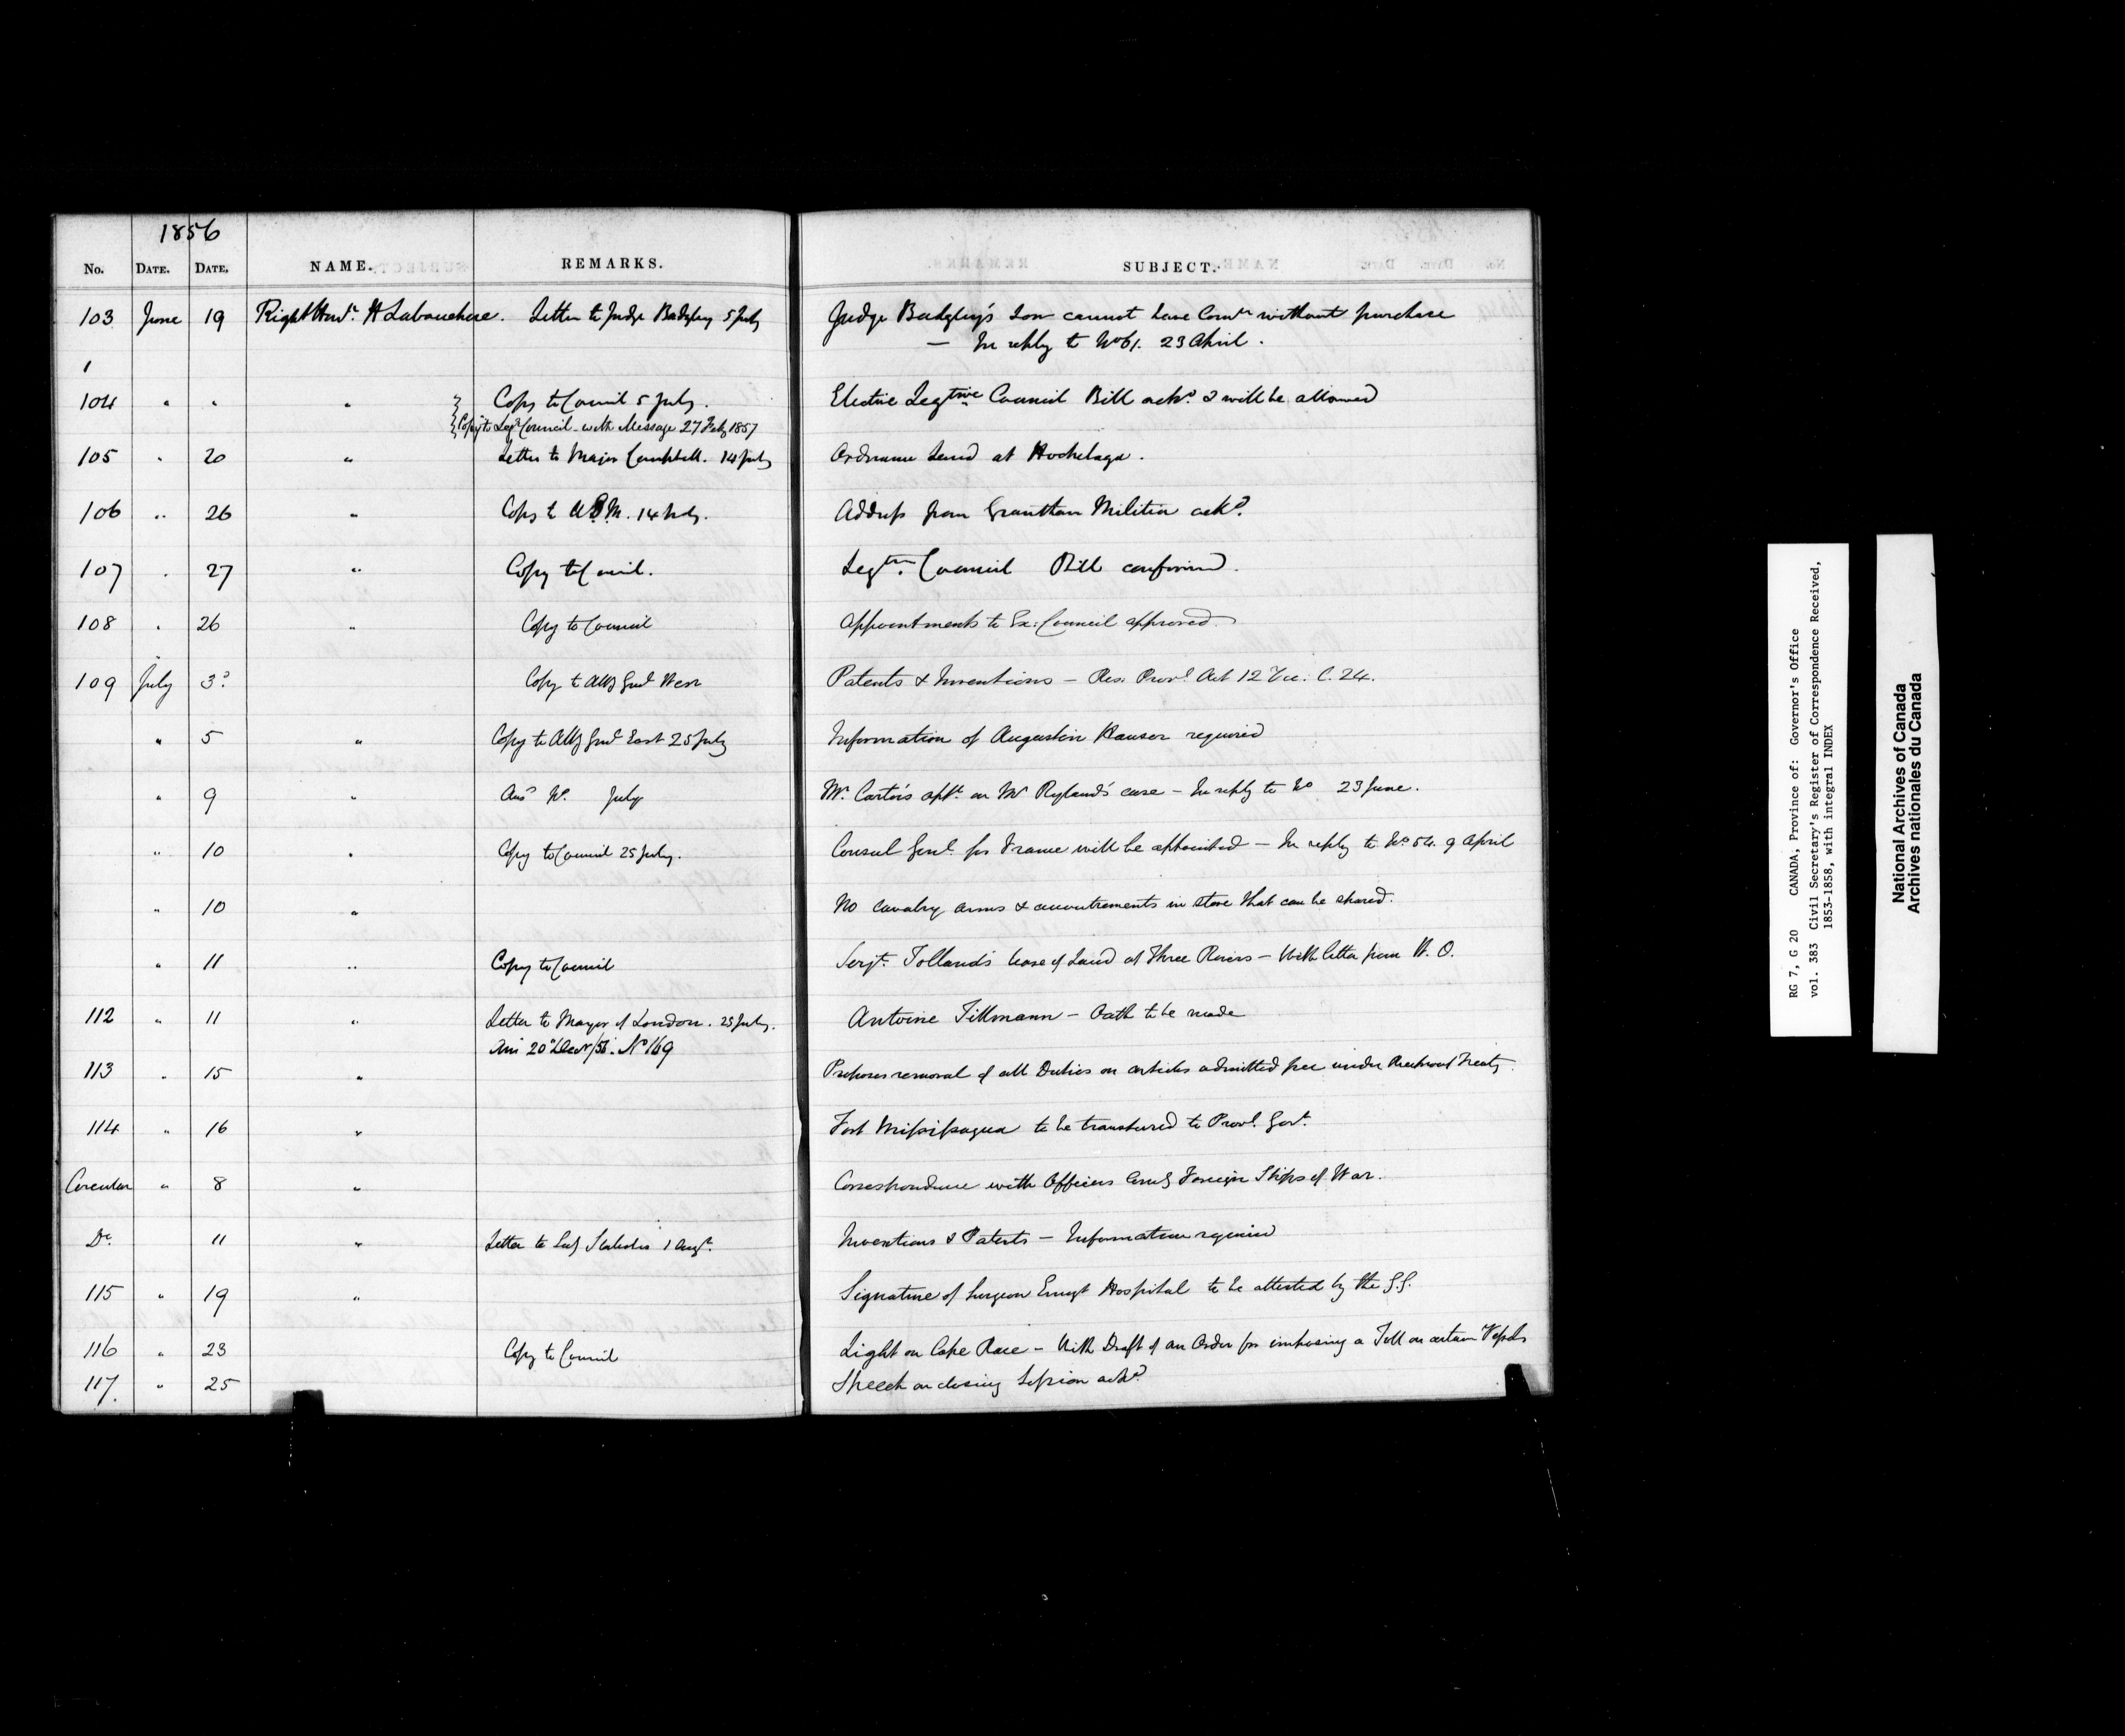 1856
No. DATE. DATE. NAME. REMARKS. SUBJECT.
103 June 19 Right Honl. H Labouchere. Letter to Judge Badgley 5 July Judge Badgley's Son cannot have Comn without purchase
— In reply to No 61. 23 April.
104 " " " Copy to Council 5 July. Elective Legtive Council Bill ackd & will be allowed
Copy to Legt Council - with Message 27 Feby 1857
105 " 20 " Letter to Major Campbell. 14 July Ordnance Land at Hochelaga.
106 " 26 " Copy to 14 July. Address from Grantham Militia ackd.
107 " 27 " Copy to Council. Legtive Council Bill confirmed.
108 " 26 " Copy to Council Appointments to Ex: Council approved.
109 July 3d. Copy to Atty Genl West Patents & Inventions — Res: Provl. Act 12 Vic: C. 24.
" 5 " Copy to Atty Genl East 25 July Information of Augustin Hauser required
" 9 " Ansd No. July Mr. Carter's appt. on Mr Ryland's case — In reply to No 23 June.
" 10 " Copy to Council 25 July. Consul Genl. for France will be appointed — In reply to No. 54. 9 April
" 10 " No cavalry arms & accoutrements in store that can be spared.
" 11 " Copy to Council Serjt. Tolland's lease of Land at Three Rivers — With letter from W. O.
112 " 11 " Letter to Mayor of London. 25 July. Antoine Tillmann — Oath to be made
Ans 20 Decr/56. No 169
113 " 15 " Proposes removal of all Duties on articles admitted free under Reciprocal Treaty.
114 " 16 " Fort Missisagua to be transferred to Provl. Govt.
Circular " 8 " Correspondence with Officers Comg Foreign Ships of War.
Do. 11 " Letter to 1 Augt. Inventions & Patents — Information required
115 " 19 " Signature of Surgeon Emigt Hospital to be attested by the G.G.
116 " 23 Copy to Council Light on Cape Race — With Draft of an Order for imposing a Toll on certain Vessels
117. " 25 Speech on closing Session ackd.
RG 7, G 20 CANADA, Province of: Governor's Office
vol. 383 Civil Secretary's Register of Correspondence Received,
1853-1858, with integral INDEX
National Archives of Canada
Archives nationales du Canada